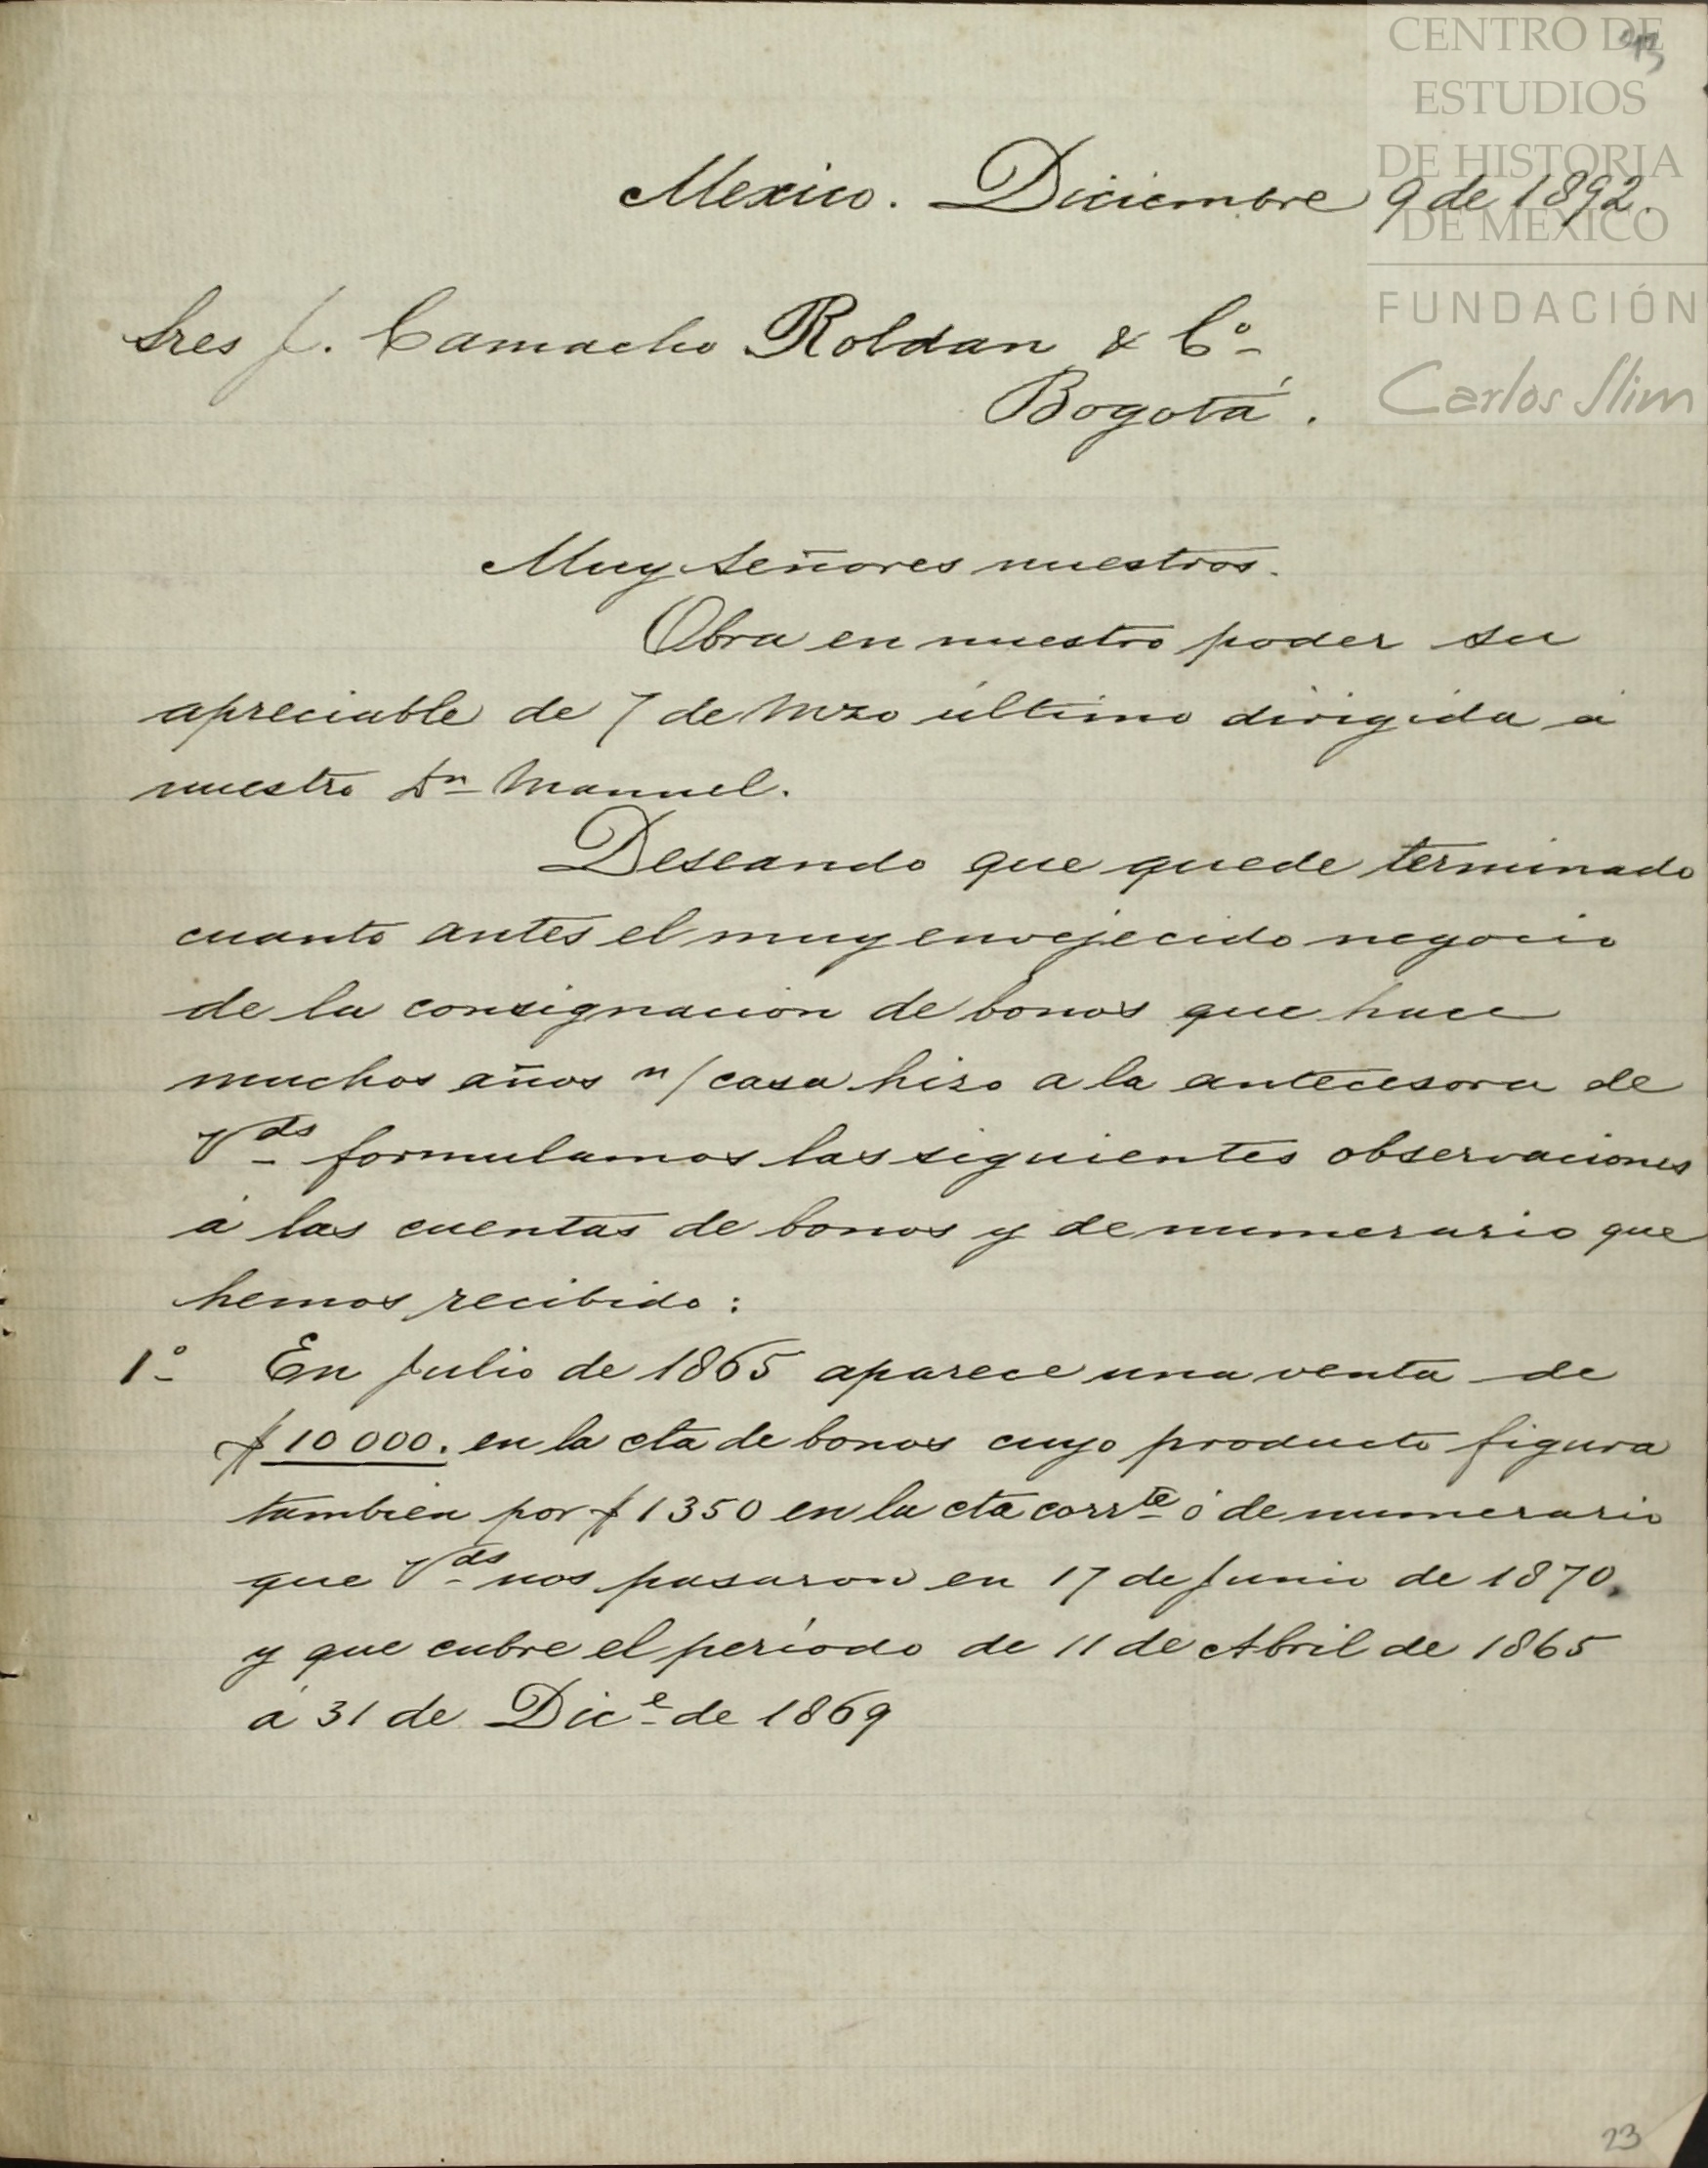 CENTRO DE
ESTUDIOS
DE HISTORIA
DE MEXICO
FUNDACIÓN
Carlos Slim
Mexico. Diciembre 9 de 1892.
Sres J. Camacho Roldan & Cº
Bogotá.
Muy Señores nuestros.
Obra en nuestro poder su
apreciable de 7 de Mzo último dirigida á
nuestro Dn Manuel.
Deseando que quede terminado
cuanto antes el muy envejecido negocio
de la consignacion de bonos que hace
muchos años n/ casa hizo a la antecesora de
Vds formulamos las siguientes observaciones
á las cuentas de bonos y de numerario que
hemos recibido:
1º En Julio de 1865 aparece una venta de
$10000. en la cta de bonos cuyo producto figura
tambien por $1350 en la cta corrte ó de numerario
que Vds nos pasaron en 17 de Junio de 1870.
y que cubre el período de 11 de Abril de 1865
á 31 de Dice de 1869
23